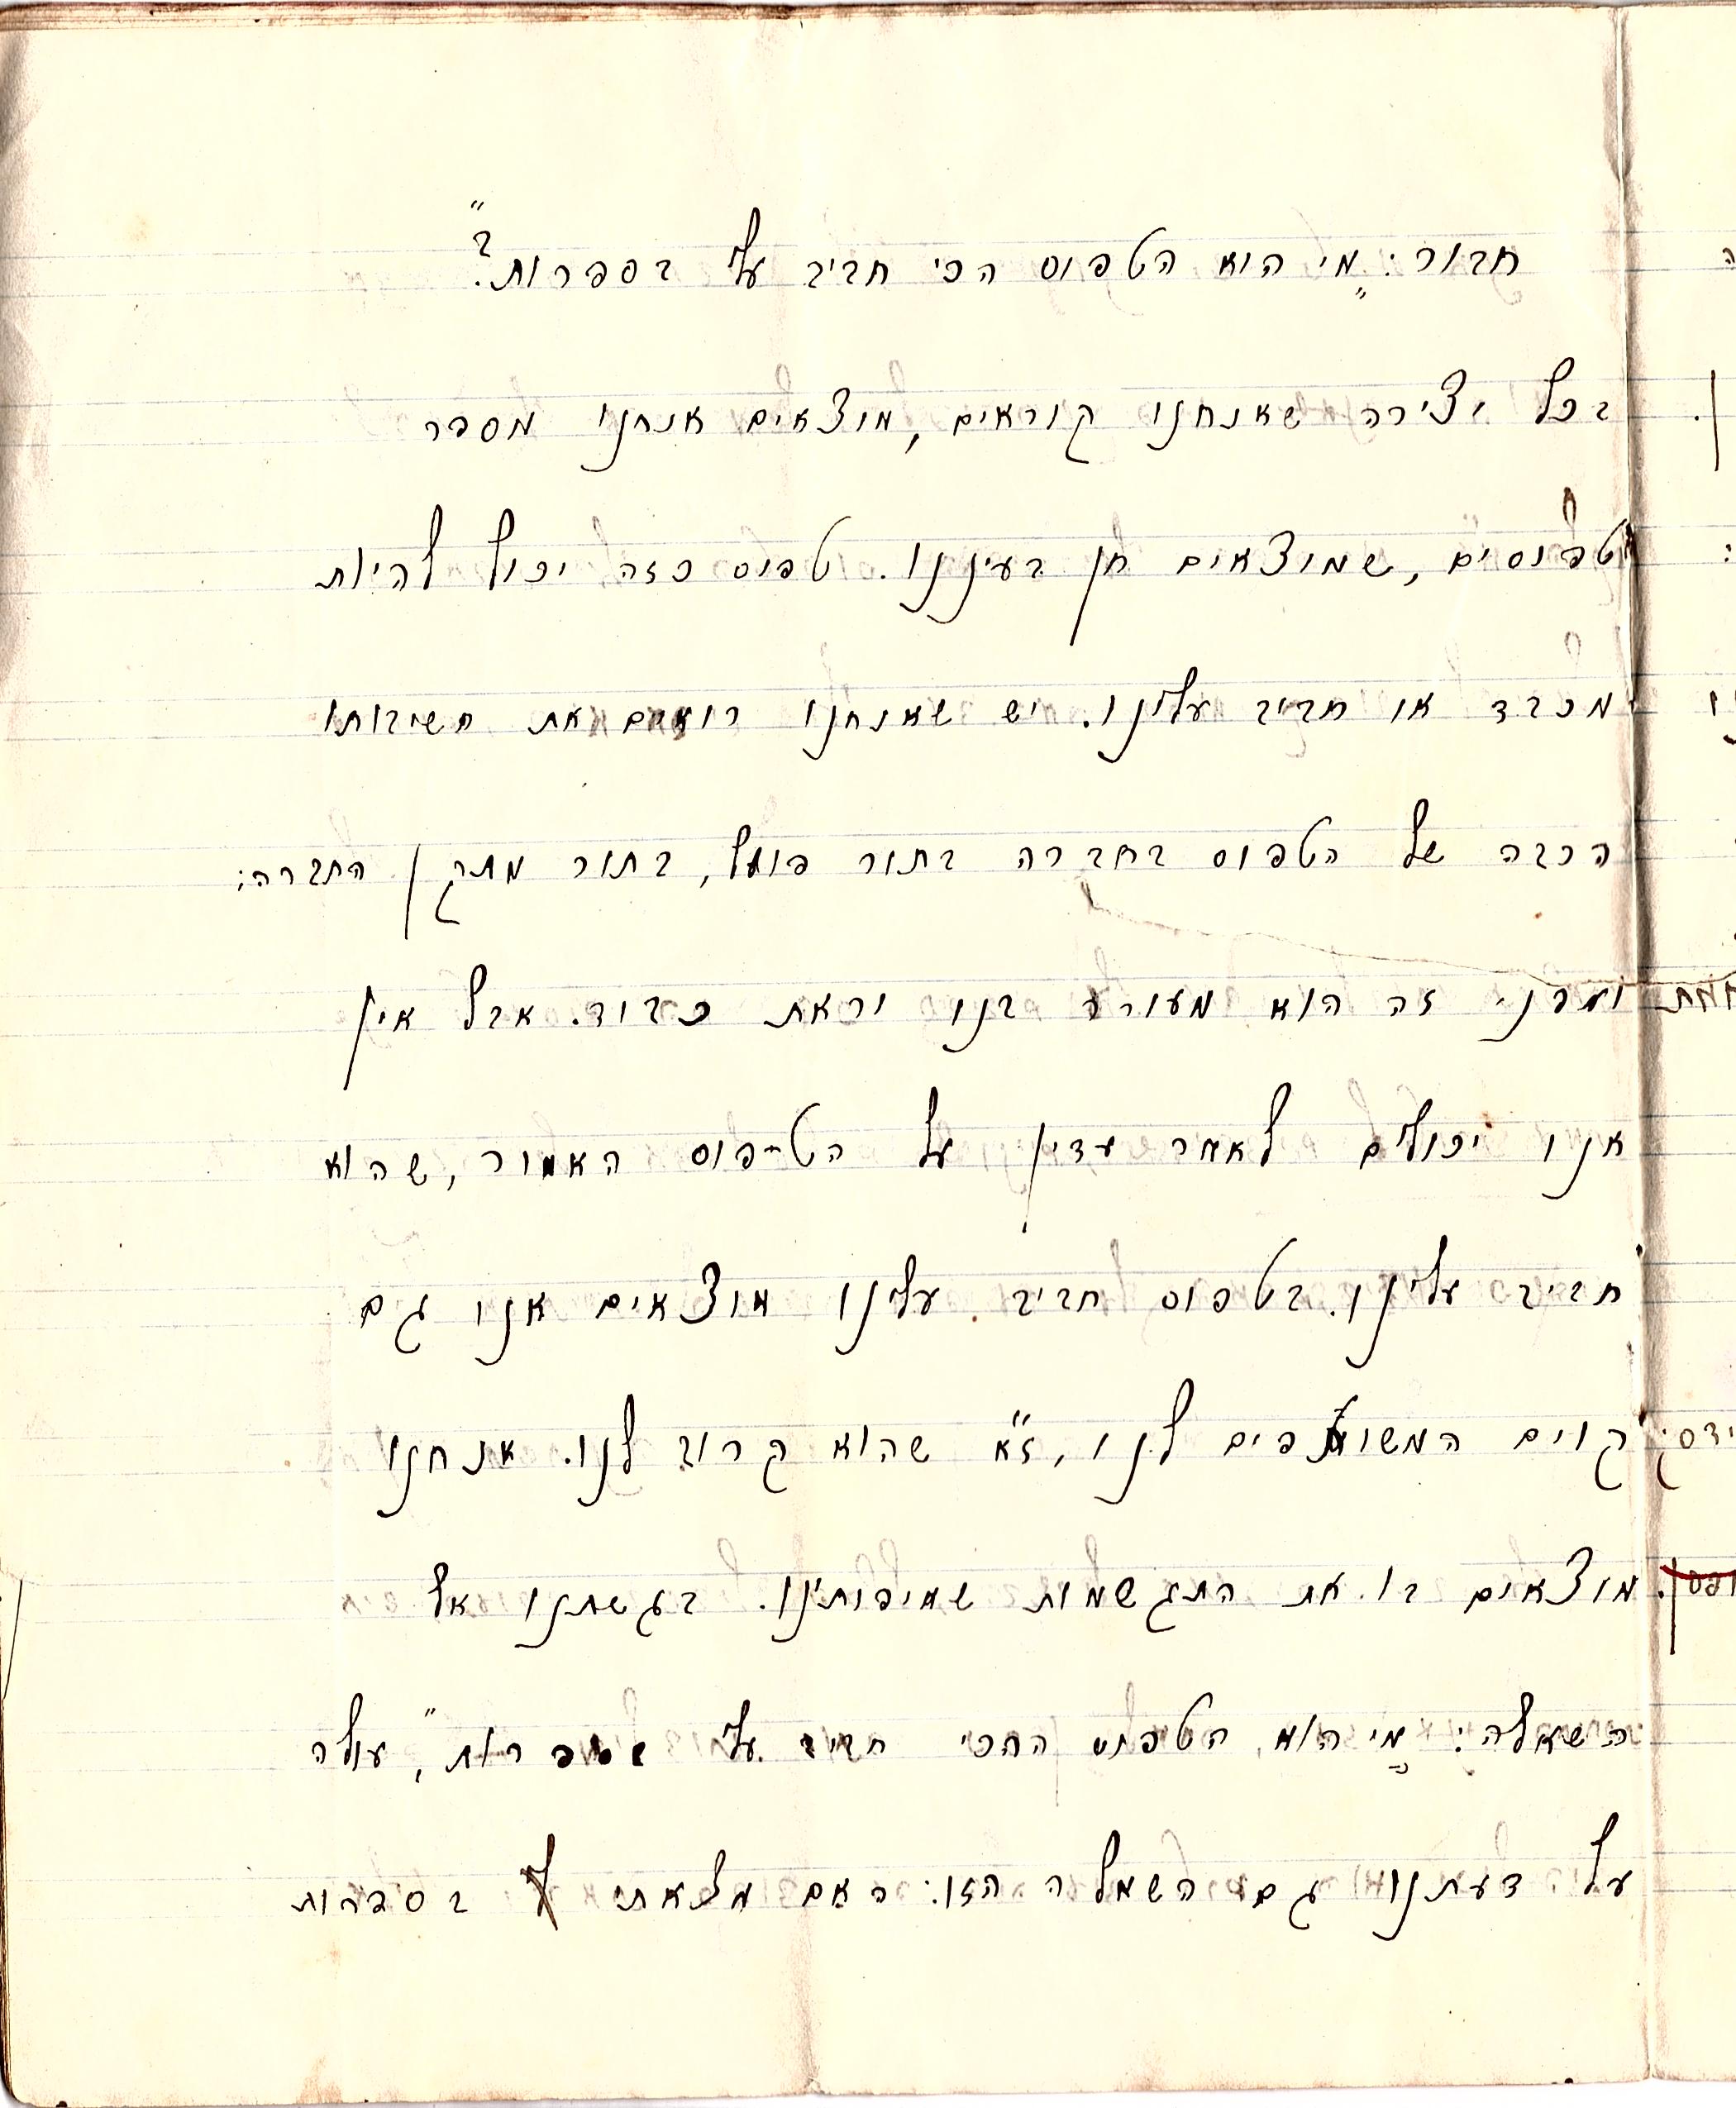 חבור: "מי הוא הטפוס הכי חביב עלי בספרות?"
בכל יצירה שאנחנו קוראים, מוצאים אנחנו מספר
טפוסים, שמוצאים חן בעינינו. טפוס כזה יכול להיות
מכבד או חביב עלינו. יש שאנחנו רואים את חשיבותו
הרבה של הטפוס בחברה בתור פועל, בתור מתקן החברה;
ומפני זה הוא מעורר בנו יראת כבוד. אבל אין
אנו יכולים לאמר עדין על הטיפוס האמור, שהוא
חביב עלינו. בטפוס חביב עלינו מוצאים אנו גם
קוים המשותפים לנו, ז"א שהוא קרוב לנו. אנחנו
מוצאים בו את התגשמות שאיפותינו. בגשתנו אל
השאלה: "מי הוא הטפוס החכי חביב עלי בספרות", עולה
על דעתנו גם השאלה הזו: האם מצאתי לי בספרות